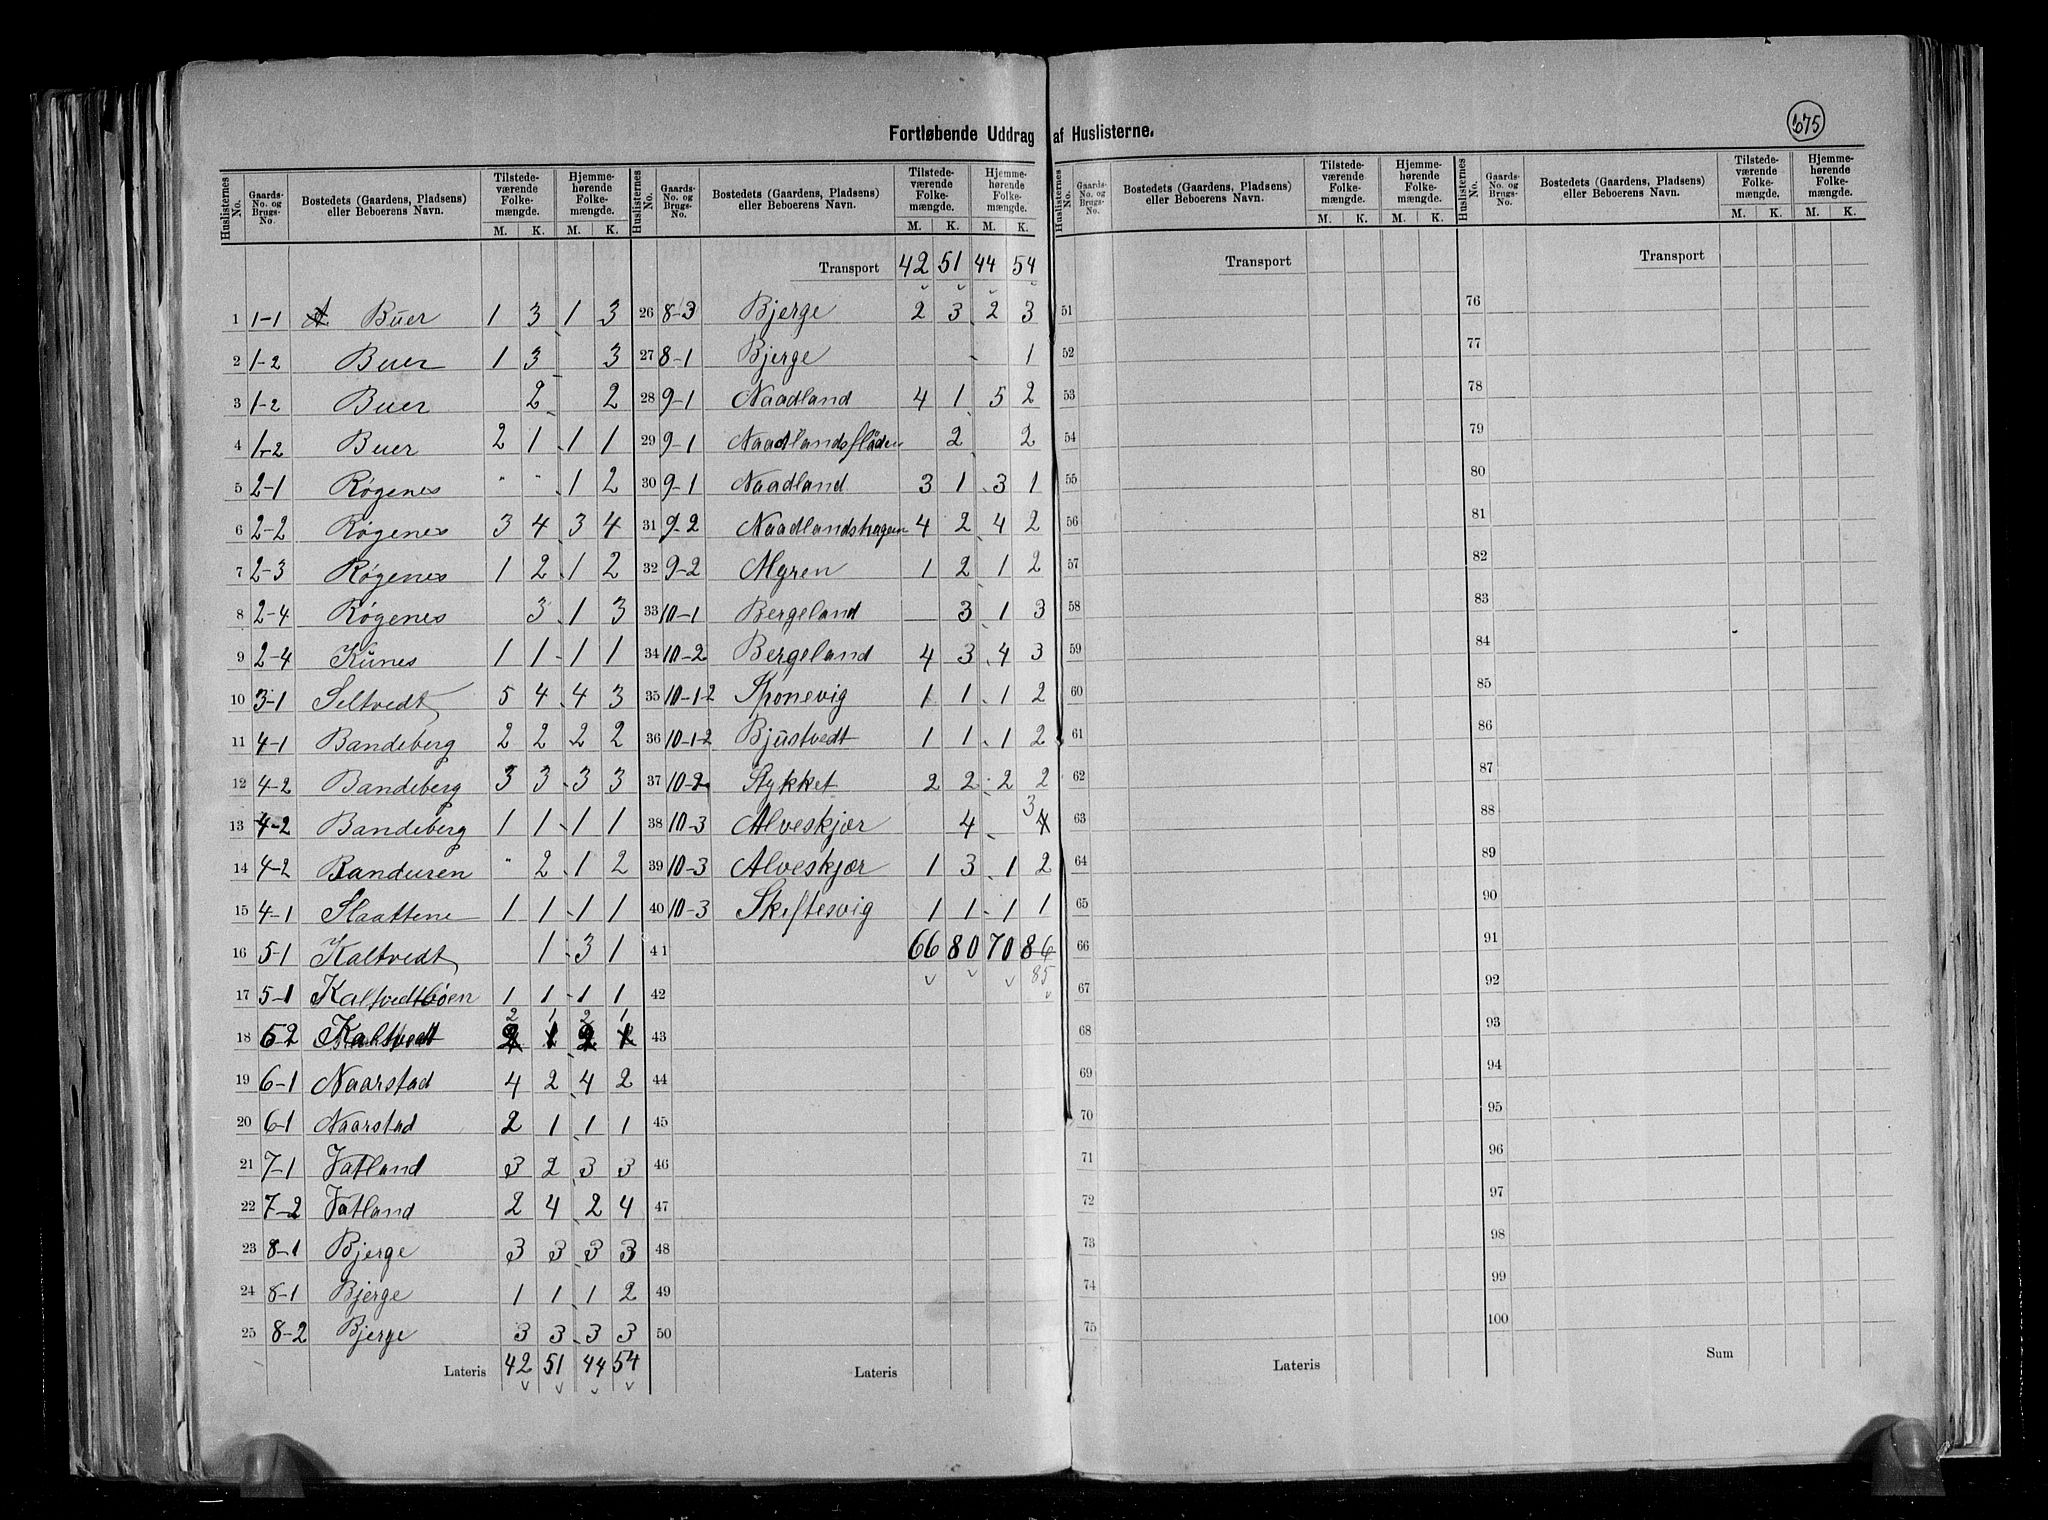 675
Fortløbende Uddrag af Huslisterne.
Huslisternes No. | Gaards-No. og Brugs-No. | Bostedets (Gaardens, Pladsens) eller Beboerens Navn. | Tilstedeværende Folkemængde. M. K. | Hjemmehørende Folkemængde. M. K.
1 1-1 Buer 1 3 1 3
2 1-2 Buer 1 3 3
3 1-2 Buer 2 2
4 1-2 Buer 2 1 1 1
5 2-1 Røgenes " " 1 2
6 2-2 Røgenes 3 4 3 4
7 2-3 Røgenes 1 2 1 2
8 2-4 Røgenes 3 1 3
9 2-4 Kunes 1 1 1 1
10 3-1 Seltvedt 5 4 4 3
11 4-1 Bandeberg 2 2 2 2
12 4-2 Bandeberg 3 3 3 3
13 4-2 Bandeberg 1 1 1 1
14 4-2 Banduren " 2 1 2
15 4-1 Slaattene 1 1 1 1
16 5-1 Kaltvedt 1 3 1
17 5-1 Kaltvedtbøen 1 1 1 1
18 5-2 Kaltvedt 2 1 2 1
19 6-1 Naarstad 4 2 4 2
20 6-1 Naarstad 2 1 1 1
21 7-1 Vatland 3 2 3 3
22 7-2 Vatland 2 4 2 4
23 8-1 Bjerge 3 3 3 3
24 8-1 Bjerge 1 1 1 2
25 8-2 Bjerge 3 3 3 3
Lateris 42 51 44 54
Huslisternes No. | Gaards-No. og Brugs-No. | Bostedets (Gaardens, Pladsens) eller Beboerens Navn. | Tilstedeværende Folkemængde. M. K. | Hjemmehørende Folkemængde. M. K.
Transport 42 51 44 54
26 8-3 Bjerge 2 3 2 3
27 8-1 Bjerge 1
28 9-1 Naadland 4 1 5 2
29 9-1 Naadlandsflåden 2 2
30 9-1 Naadland 3 1 3 1
31 9-2 Naadlandshagen 4 2 4 2
32 9-2 Myren 1 2 1 2
33 10-1 Bergeland 3 1 3
34 10-2 Bergeland 4 3 4 3
35 10-1-2 Kronevig 1 1 1 2
36 10-1-2 Bjustvedt 1 1 1 2
37 10-2 Stykket 2 2 2 2
38 10-3 Alveskjær 4 3 4
39 10-3 Alveskjær 1 3 1 2
40 10-3 Skeftesvig 1 1 1 1
41 66 80 70 86
85
42
43
44
45
46
47
48
49
50
Lateris
Huslisternes No. | Gaards-No. og Brugs-No. | Bostedets (Gaardens, Pladsens) eller Beboerens Navn. | Tilstedeværende Folkemængde. M. K. | Hjemmehørende Folkemængde. M. K.
Transport
51
52
53
54
55
56
57
58
59
60
61
62
63
64
65
66
67
68
69
70
71
72
73
74
75
Lateris
Huslisternes No. | Gaards-No. og Brugs-No. | Bostedets (Gaardens, Pladsens) eller Beboerens Navn. | Tilstedeværende Folkemængde. M. K. | Hjemmehørende Folkemængde. M. K.
Transport
76
77
78
79
80
81
82
83
84
85
86
87
88
89
90
91
92
93
94
95
96
97
98
99
100
Sum